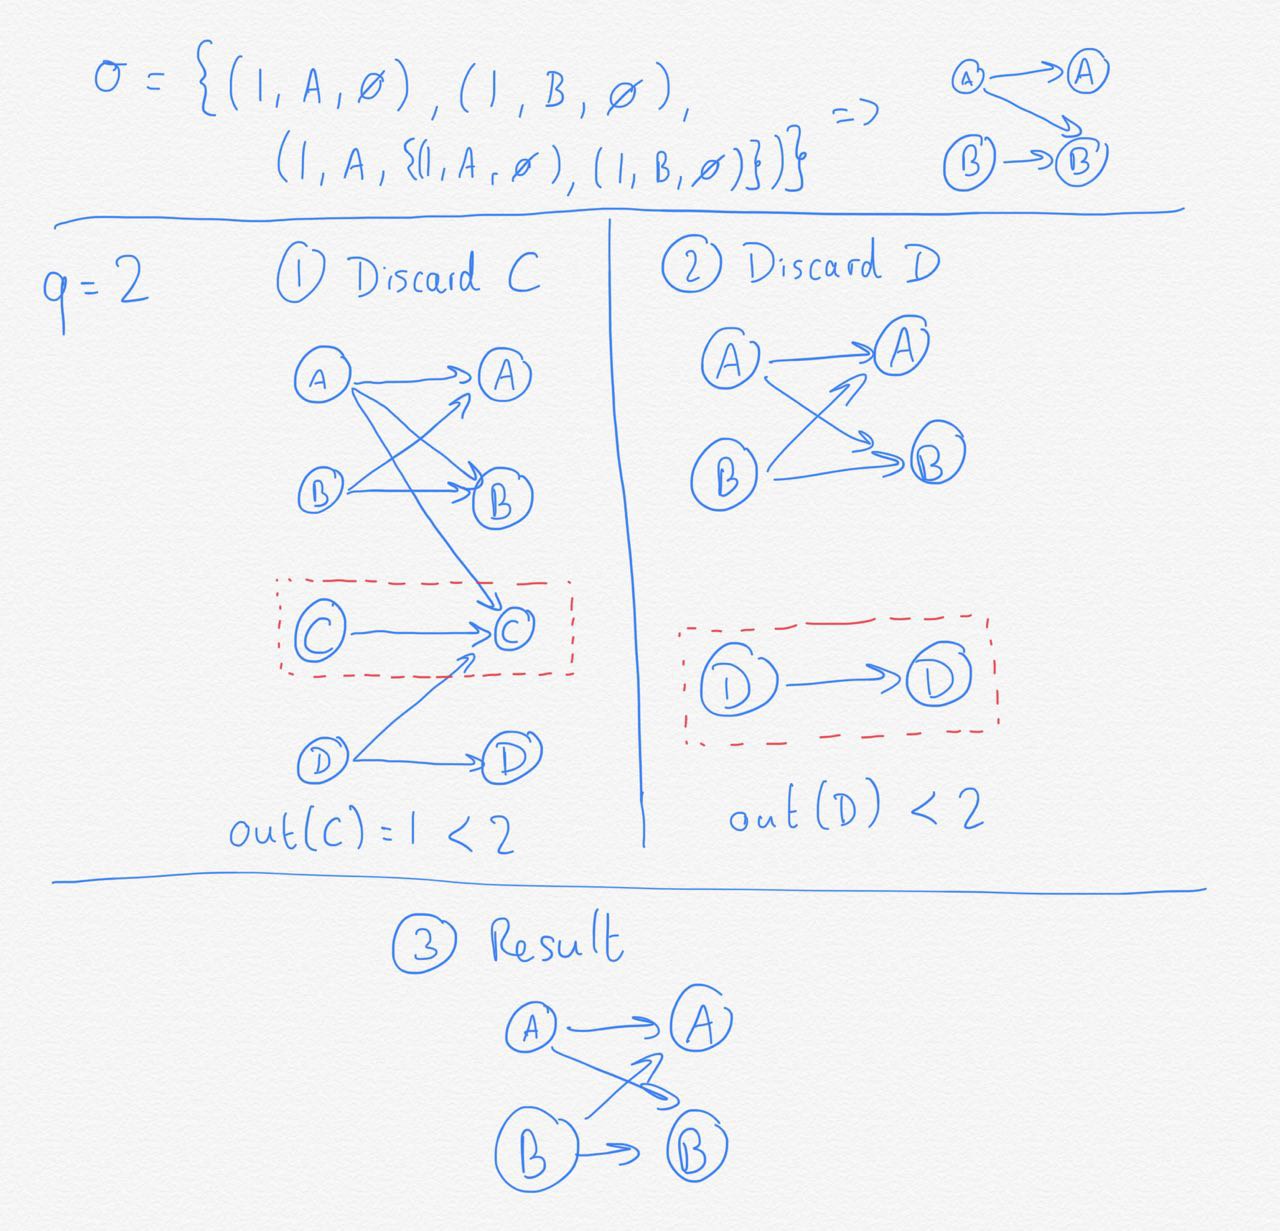 σ = {(1, A, ∅), (1, B, ∅),
(1, A, {(1, A, ∅), (1, B, ∅)})} =>
A A
B B
q = 2
① Discard C
A A
B B
C C
D D
out(C) = 1 < 2
② Discard D
A A
B B
D D
out(D) < 2
③ Result
A A
B B